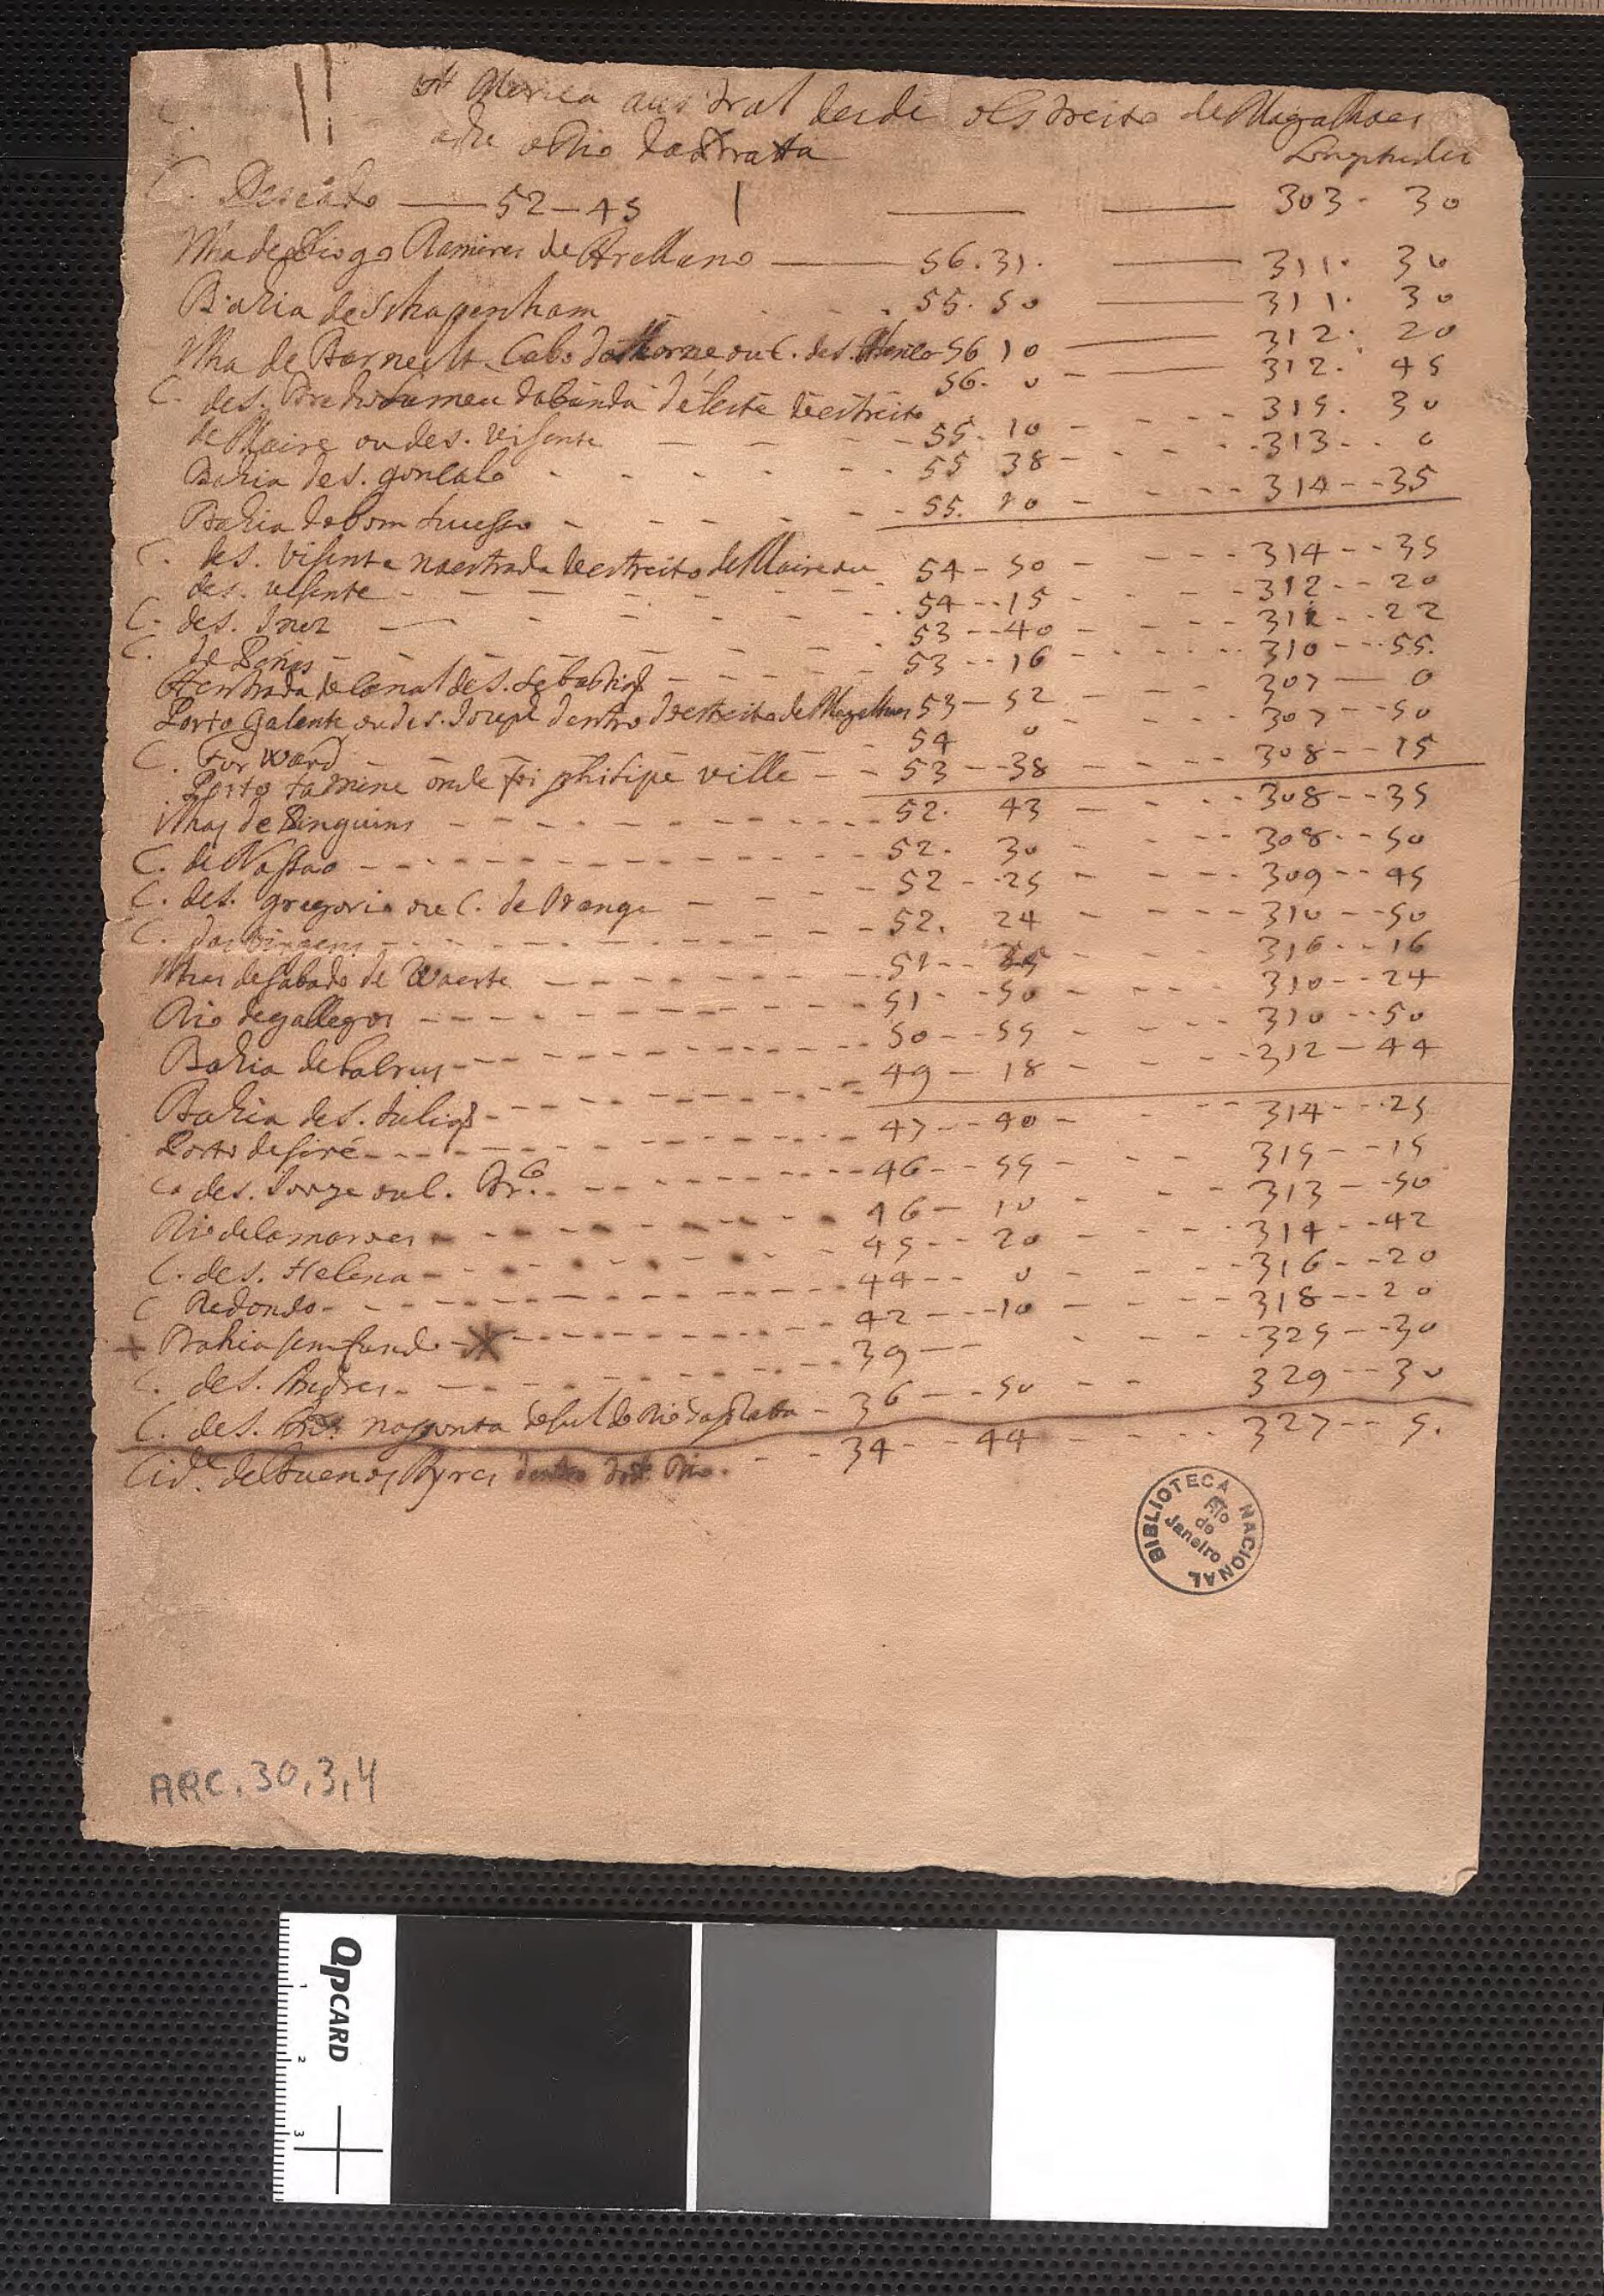 America austral desde o estreito de Magalhaes
athe o Rio da Pratta
Longitudes
C. Deseado — 52 — 45 — 303 · 30
Ilha de Diogo Ramires de Arellano — 56 . 31 . — 311 · 30
Bahia de Shapenham . 55 . 50 — 311 · 30
Ilha de Barnevelt Cabo de Horne ou C. de s. 56 10 — 312 · 20
56 . 0 — 312 . 45
C. de s. Bertholameu da banda de leste do estreito
de Maire ou de s. Visente - - - 55 . 10 - - - 315 . 30
Bahia de s. goncalo - - - 55 38 - - - 313 - - 0
Bahia do bom sucesso - - - 55 . 20 - - - 314 - - 35
C. de s. Visente na entrada do estreito de Maire ou 54 - 50 - - - 314 - - 35
de s. visente - - - 54 - - 15 - - - 312 - - 20
C. de s. Inez - - - 53 - - 40 - - - 311 - - 22
C. de Penas - - - 53 - - 16 - - - 310 - - 55 .
A entrada do canal de s. Sebastião - - - 53 - 52 - - - 307 — 0
Porto Galante ou de s. Joseph dentro do estreito de Magalhaes 54 0 - - - 307 - - 50
C. For Ward - - - 53 - - 38 - - - 308 - - 15
Porto famine onde foi philipe ville - -
Ilhas de Pinguins - - - 52 . 43 - - - 308 - - 35
C. de Nassao - - - 52 . 30 - - - 308 - - 50
C. de s. gregorio ou C. de Orange - - - 52 - - 25 - - - 309 - - 45
C. das Virgens - - - 52 . 24 - - - 310 - - 50
Ilhas de Sabado de Waerte - - - 51 - - - - - 316 - - 16
Rio de gallegos - - - 51 - - 50 - - - 310 - - 24
Bahia de - - - 50 - - 55 - - - 310 - - 50
Bahia de s. Julião - - - 49 - 18 - - - 312 - 44
Porto desiré - - - 47 - - 40 - - - 314 - - 25
C. de s. Jorze ou C. - - - 46 - - 55 - - - 315 - - 15
Rio de - - - 46 - 10 - - - 313 - - 50
C. de s. Helena - - - 45 - - 20 - - - 314 - - 42
C Redondo - - - 44 - - 0 - - - 316 - - 20
Bahia sem fundo - - - 42 - - 10 - - - 318 - - 20
C. de s. Andres - - - 39 - - - - - 325 - - 30
C. de s. na ponta do sul do Rio da plata - 36 - - 50 - - - 329 - - 30
Cid.e de Buenos Ayres dentro Rio . - - 34 - - 44 - - - 327 - - 5 .
BIBLIOTECA NACIONAL
Rio
de
Janeiro
ARC. 30,3,4
QPCARD
1
2
3